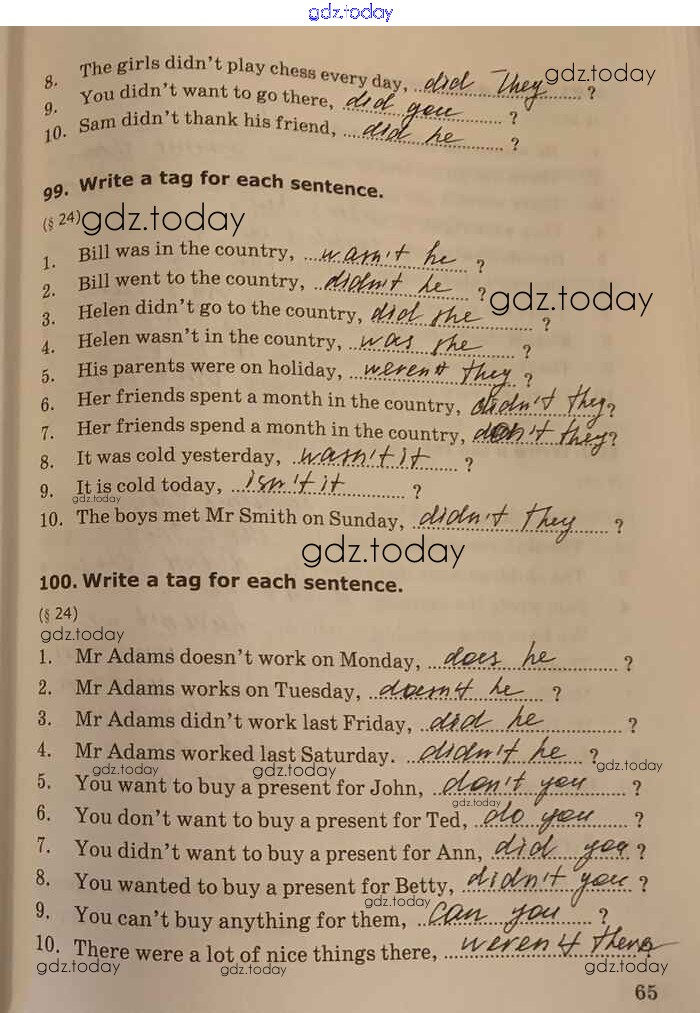 gdz.today
8. The girls didn't play chess every day, did They ? gdz.today
9. You didn't want to go there, did you ?
10. Sam didn't thank his friend, did he ?
99. Write a tag for each sentence.
(§ 24) gdz.today
1. Bill was in the country, wasn't he ?
2. Bill went to the country, didn't he ?
gdz.today
3. Helen didn't go to the country, did she ?
4. Helen wasn't in the country, was she ?
5. His parents were on holiday, weren't they ?
6. Her friends spent a month in the country, didn't they ?
7. Her friends spend a month in the country, don't they ?
8. It was cold yesterday, wasn't it ?
9. It is cold today, isn't it ?
gdz.today
10. The boys met Mr Smith on Sunday, didn't they ?
gdz.today
100. Write a tag for each sentence.
(§ 24)
gdz.today
1. Mr Adams doesn't work on Monday, does he ?
2. Mr Adams works on Tuesday, doesn't he ?
3. Mr Adams didn't work last Friday, did he ?
4. Mr Adams worked last Saturday. didn't he ?
gdz.today gdz.today gdz.today
5. You want to buy a present for John, don't you ?
gdz.today
6. You don't want to buy a present for Ted, do you ?
7. You didn't want to buy a present for Ann, did you ?
8. You wanted to buy a present for Betty, didn't you ?
gdz.today
9. You can't buy anything for them, can you ?
10. There were a lot of nice things there, weren't there
gdz.today gdz.today gdz.today
65